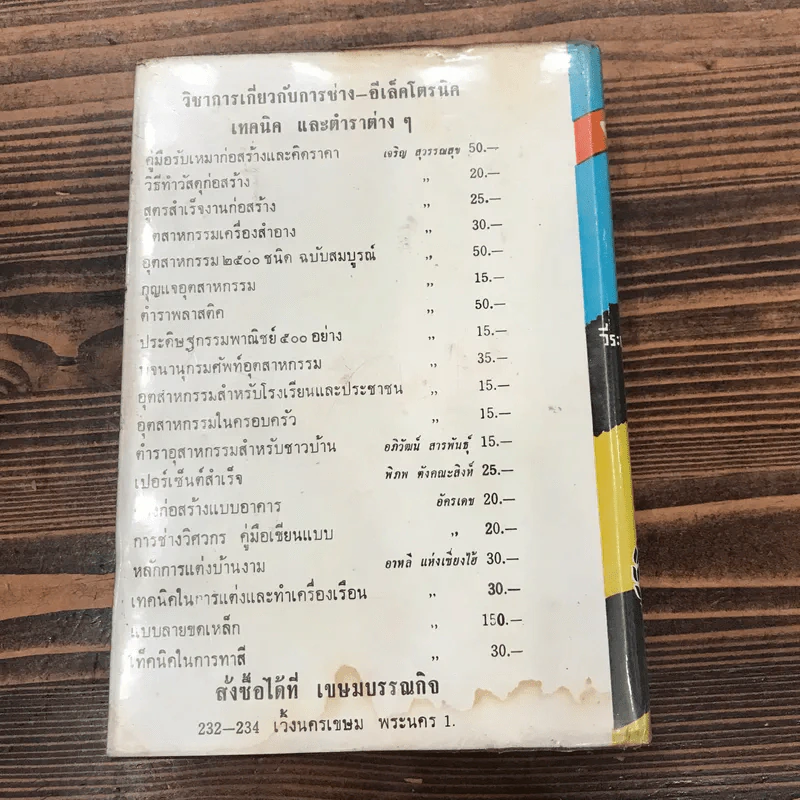 วิชาการเกี่ยวกับการช่าง–อีเล็คโตรนิค
เทคนิค และตำราต่าง ๆ
คู่มือรับเหมาก่อสร้างและคิดราคา เจริญ สุวรรณสุข 50.—
วิธีทำวัสดุก่อสร้าง ,, 20.—
สูตรสำเร็จงานก่อสร้าง ,, 25.—
อุตสาหกรรมเครื่องสำอาง ,, 30.—
อุตสาหกรรม ๒๕๐๐ ชนิด ฉบับสมบูรณ์ ,, 50.—
กุญแจอุตสาหกรรม ,, 15.—
ตำราพลาสติค ,, 50.—
ประดิษฐกรรมพาณิชย์ ๕๐๐ อย่าง ,, 15.—
พจนานุกรมศัพท์อุตสาหกรรม ,, 35.—
อุตสาหกรรมสำหรับโรงเรียนและประชาชน ,, 15.—
อุตสาหกรรมในครอบครัว ,, 15.—
ตำราอุสาหกรรมสำหรับชาวบ้าน อภิวัฒน์ สารพันธุ์ 15.—
เปอร์เซ็นต์สำเร็จ พิภพ ตังคณะสิงห์ 25.—
ก่อสร้างแบบอาคาร อัครเดช 20.—
การช่างวิศวกร คู่มือเขียนแบบ ,, 20.—
หลักการแต่งบ้านงาม อาหลี แห่งเซี่ยงไฮ้ 30.—
เทคนิคในการแต่งและทำเครื่องเรือน ,, 30.—
แบบลายขดเหล็ก ,, 150.—
เท็คนิคในการทาสี ,, 30.—
สั่งซื้อได้ที่ เขษมบรรณกิจ
232—234 เวิ้งนครเขษม พระนคร 1.